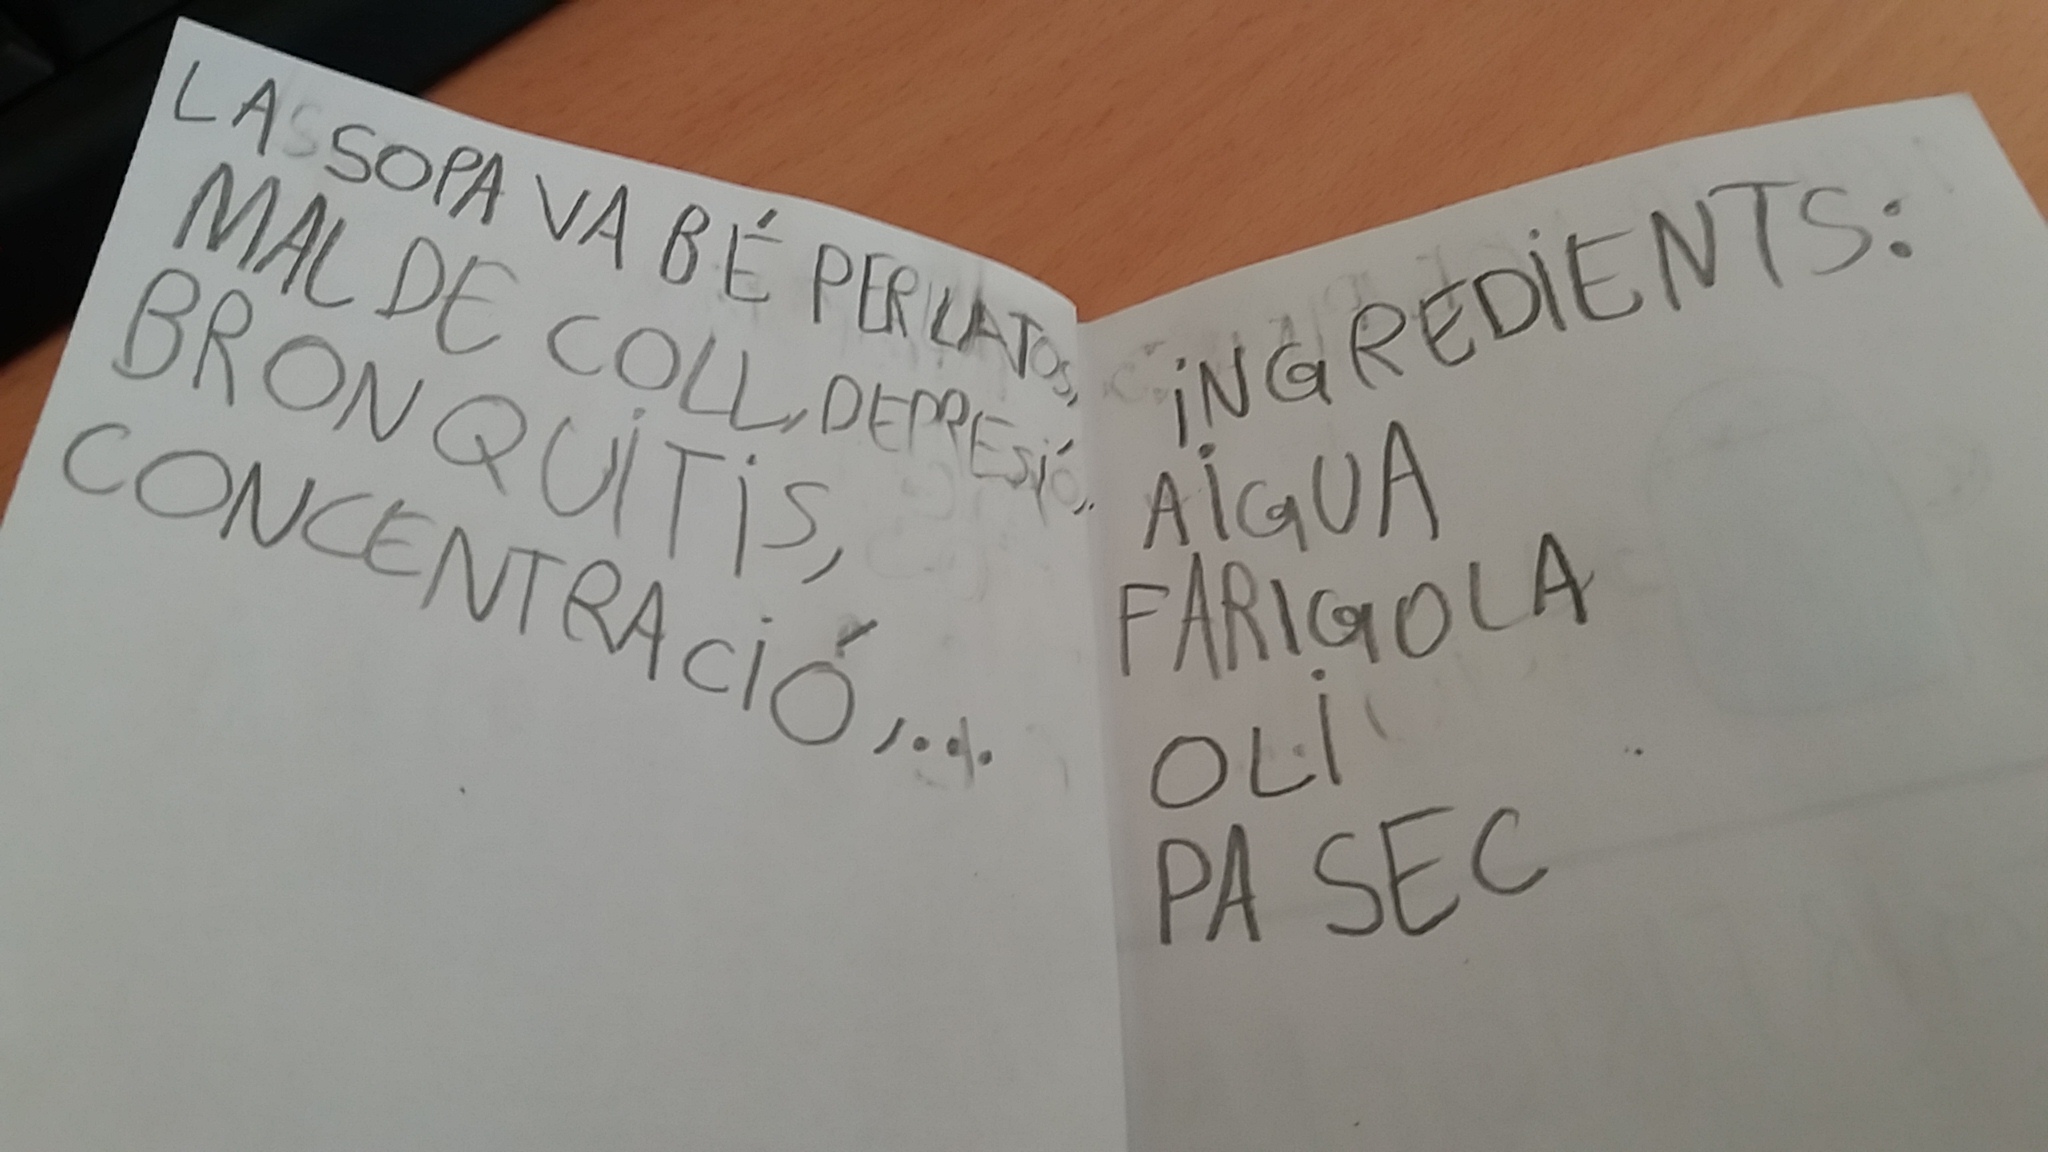 LA SOPA VA BÉ PER LA TOS,
MAL DE COLL, DEPRESIÓ,
BRONQUITIS,
CONCENTRACIÓ,...
INGREDIENTS:
AIGUA
FARIGOLA
OLI
PA SEC